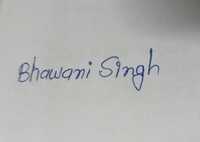 Bhawani Singh